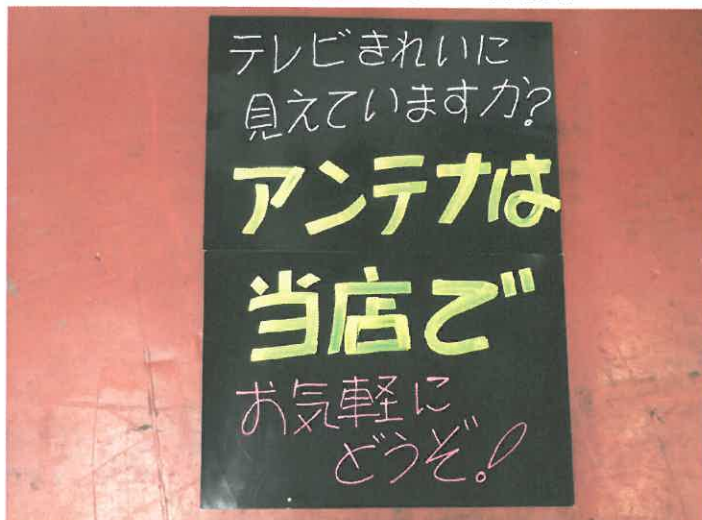 テレビきれいに
見えていますか?
アンテナは
当店で
お気軽に
どうぞ!